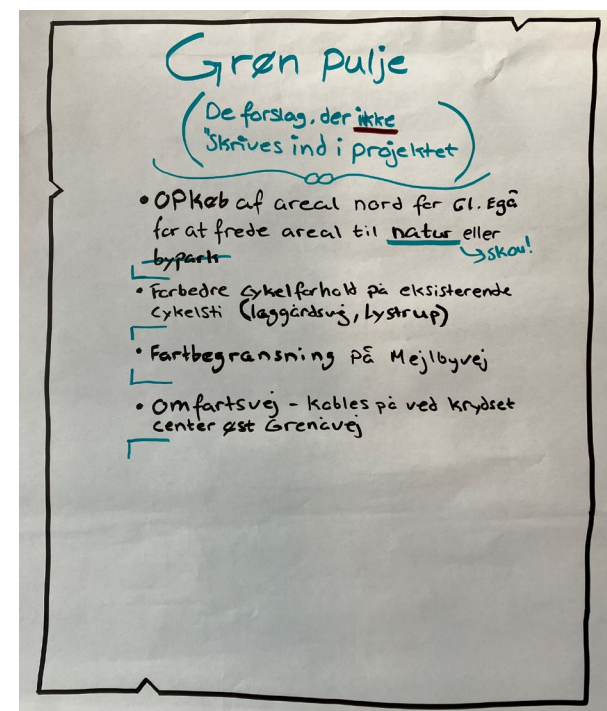 Grøn pulje
(De forslag, der ikke
"Skrives ind i projektet)
• OPKøb af areal nord for Gl. Egå
for at frede areal til natur eller
bypark
skov!
• Forbedre cykelforhold på eksisterende
cykelsti (laggårdsvej, Lystrup)
• Fartbegrænsning på Mejlbyvej
• Omfartsvej - kobles på ved krydset
center øst Grenåvej